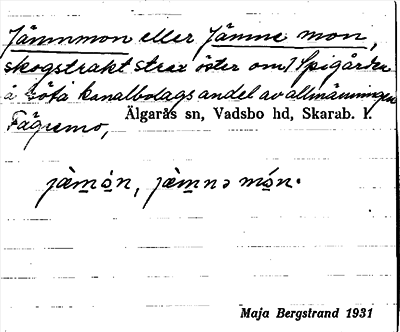 Jämnmon eller Jämne mon,
skogstrakt strax öster om Spigården
å Göta kanalbolags andel av allmänningen
Fägremo,
Älgarås sn, Vadsbo hd, Skarab. l.
jàmón, jæ̀mnə món.
Maja Bergstrand 1931